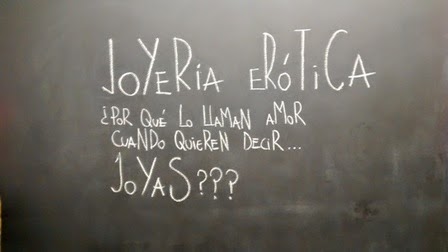 JOYERÍA ERÓTICA
¿POR QUÉ LO LLAMAN AMOR
CUANDO QUIEREN DECIR...
JOYAS???